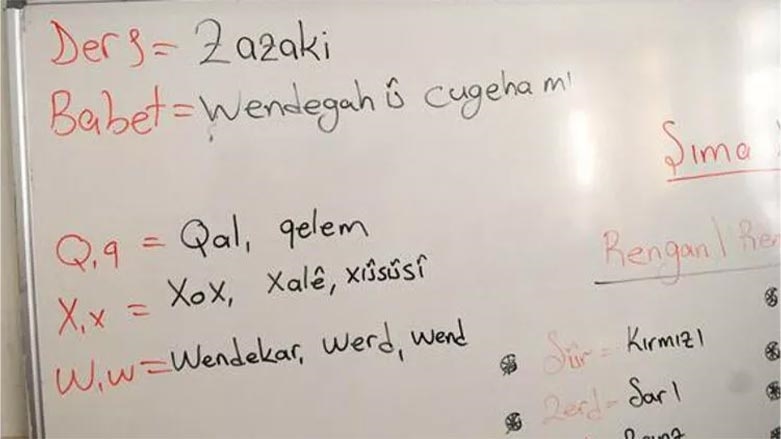 Ders = Zazaki
Babet = Wendegah û cugeha mı
Q,q = Qal, qelem
X,x = XoX, Xalê, xûsûsî
W,w = Wendekar, werd, wend
Şıma
Rengan /
Sûr = Kırmızı
Zerd = Sarı